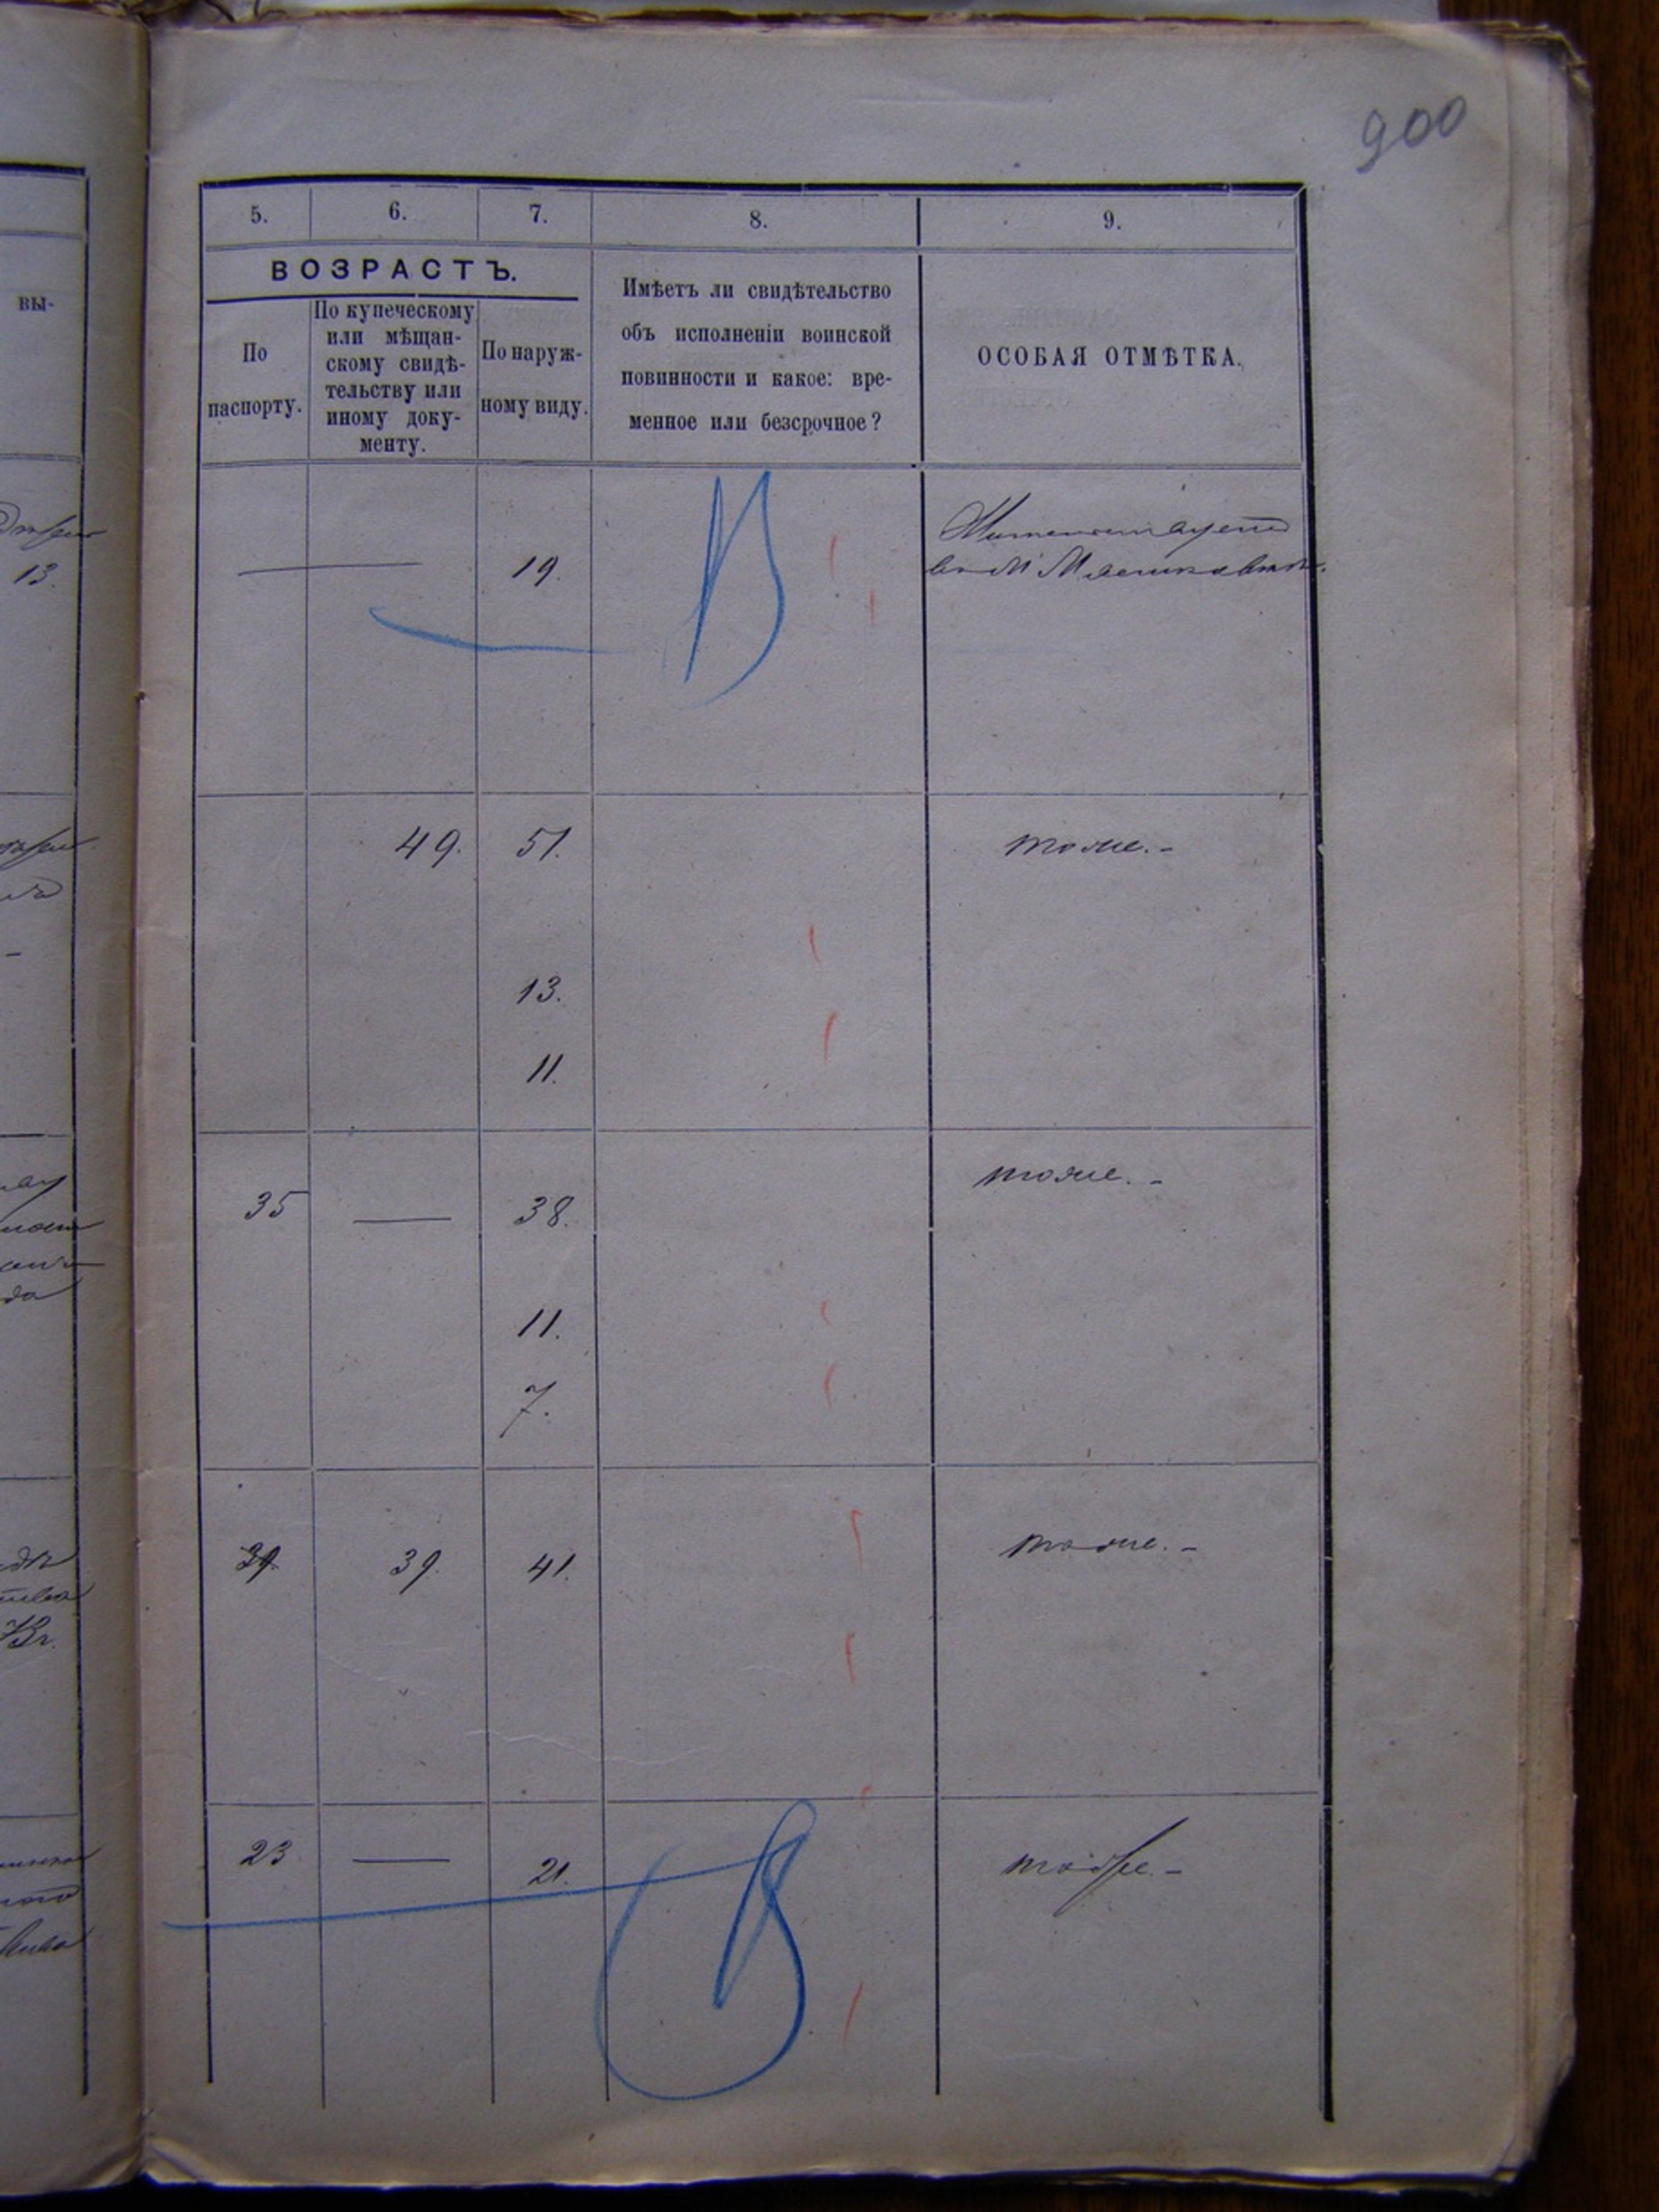 900
5. 6. 7. 8. 9.
ВОЗРАСТЪ.
По
паспорту.
По купеческому
или мѣщан-
скому свидѣ-
тельству или
иному доку-
менту.
По наруж-
ному виду.
Имѣетъ ли свидѣтельство
объ исполненіи воинской
повинности и какое: вре-
менное или безсрочное?
ОСОБАЯ ОТМѢТКА.
вы-
13.
— 19.
49. 51. тоже.-
13.
11.
35 — 38. тоже.-
11.
7.
39. 39. 41. тоже.-
23 — 21. тоже.-